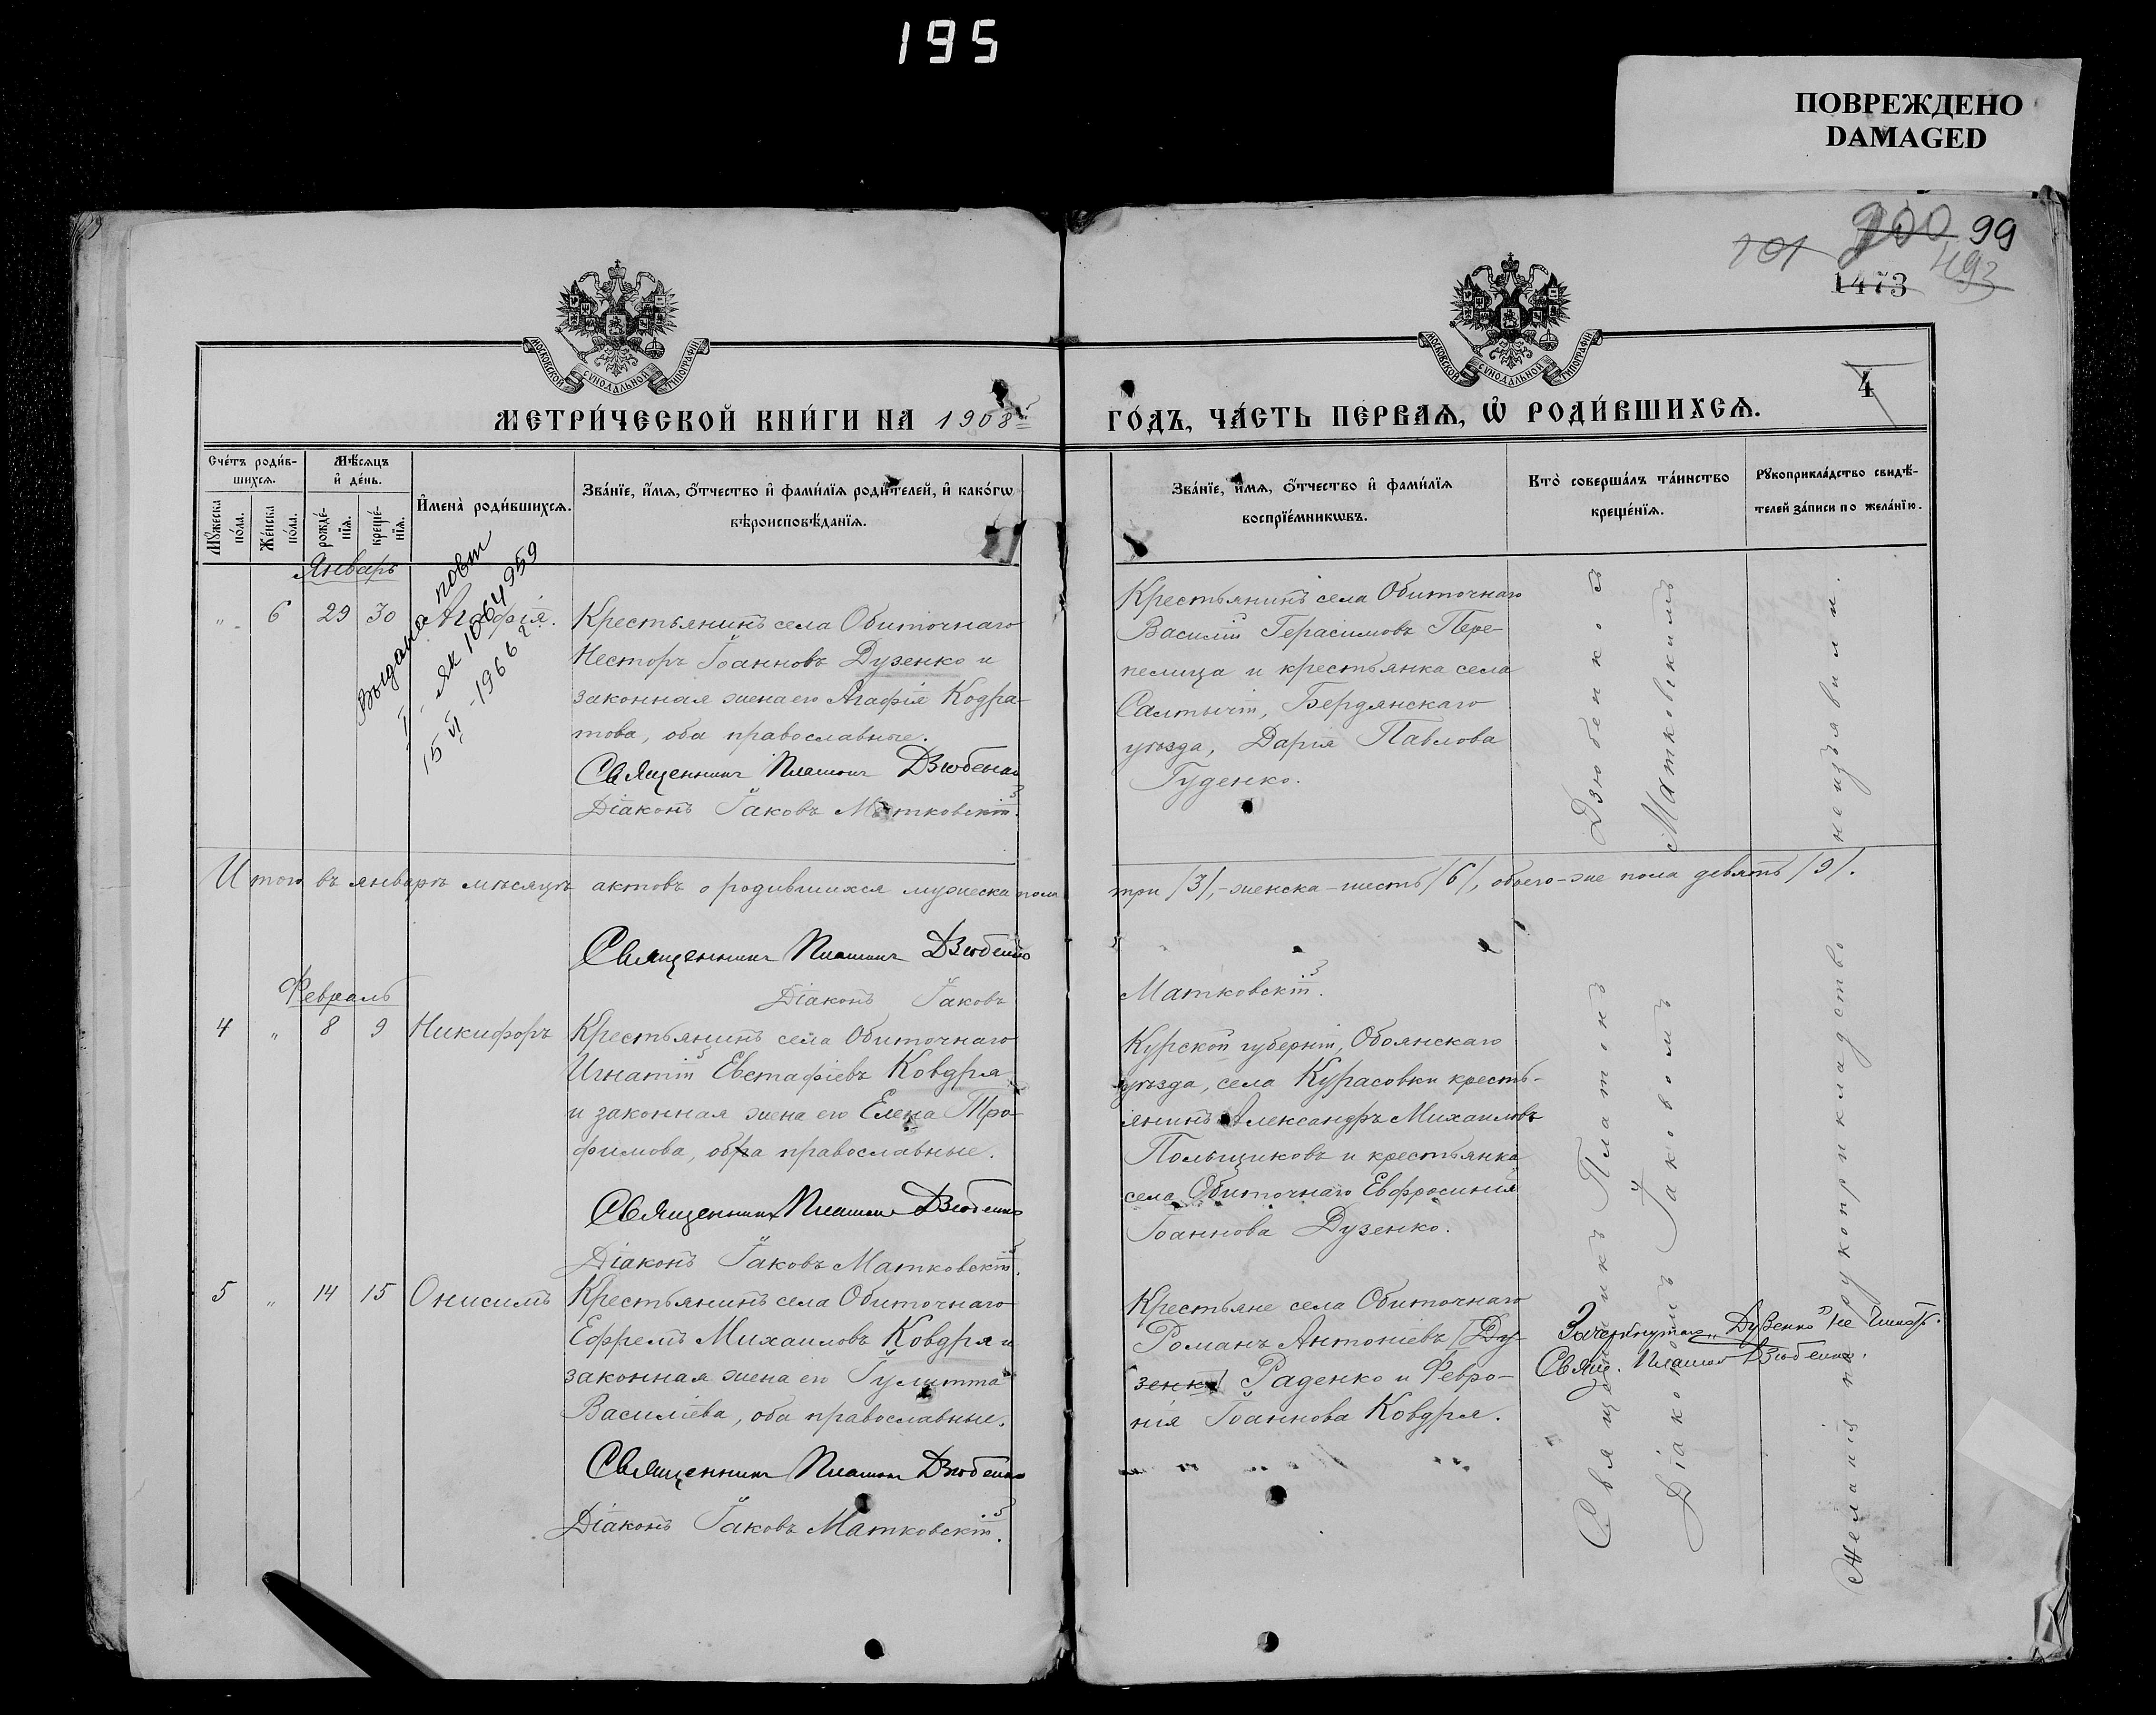 195
ПОВРЕЖДЕНО
DAMAGED
101 200 99
1473 493
МОСКОВСКОЙ СУНОДАЛЬНОЙ ТИПОГРАФІИ
МОСКОВСКОЙ СУНОДАЛЬНОЙ ТИПОГРАФІИ
4
МЕТРИ́ЧЕСКОЙ КНИ́ГИ НА 1908й
ГО́ДЪ, ЧА́СТЬ ПЕ́РВАѦ, Ѡ РОДИ́ВШИХСѦ.
Сче́тъ роди́в-
шихсѧ.
Мѣ́сѧцъ
и҆ де́нь.
Мꙋ́жеска
по́ла.
Же́нска
по́ла.
рожде́-
нїѧ.
креще́-
нїѧ.
И҆мена̀ роди́вшихсѧ.
Зва́нїе, и҆́мѧ, о҆́тчество и҆ фами́лїѧ роди́телей, и҆ како́гѡ
вѣроисповѣ́данїѧ.
Зва́нїе, и҆́мѧ, о҆́тчество и҆ фами́лїѧ
воспрїе́мникѡвъ.
Кто̀ соверша́лъ та́инство
креще́нїѧ.
Рꙋкоприкла́дство свидѣ́-
телей за́писи по жела́нїю.
Январь
" 6 29 30 Агафія.
Выдано повт
I - ЯК 1064959
15 VI -1966 г.
Крестьянинъ села Обиточнаго
Несторъ Іоанновъ Дузенко и
законная жена его Агафія Кодра-
това, оба православные.
Священникъ Платонъ Дзюбенко
Діаконъ Іаковъ Матковскій.
Крестьянинъ села Обиточнаго
Василій Герасимовъ Пере-
пелица и крестьянка села
Салтычіи, Бердянскаго
уѣзда, Дарія Павлова
Гуденко.
Итого въ январѣ мѣсяцѣ актовъ о родившихся мужеска пола
три /3/, - женска - шесть /6/, обоего-же пола девять /9/.
Священникъ Платонъ Дзюбенко
Діаконъ Іаковъ
Матковскій.
Февраль
4 " 8 9 Никифоръ
Крестьянинъ села Обиточнаго
Игнатій Евстафіевъ Ковдря
и законная жена его Елена Тро-
фимова, оба православные.
Священникъ Платонъ Дзюбенко
Діаконъ Іаковъ Матковскій.
Курской губерніи, Обоянскаго
уѣзда, села Курасовки кресть-
янинъ Александръ Михаиловъ
Польщиковъ и крестьянка
села Обиточнаго Евфросинія
Іоаннова Дузенко.
5 " 14 15 Онисимъ
Крестьянинъ села Обиточнаго
Ефремъ Михаиловъ Ковдря и
законная жена его Іулитта
Василіева, оба православные.
Священникъ Платонъ Дзюбенко
Діаконъ Іаковъ Матковскій.
Крестьяне села Обиточнаго
Романъ Антоніевъ /Ду-
зенко/ Раденко и Февро-
нія Іоаннова Ковдря.
Священникъ Платонъ Дзюбенко съ
Діакономъ Іаковомъ Матковскимъ
Зачеркнутое „Дузенко" не читать.
Свящ. Платонъ Дзюбенко.
Желанія на рукоприкладство не изъявили.